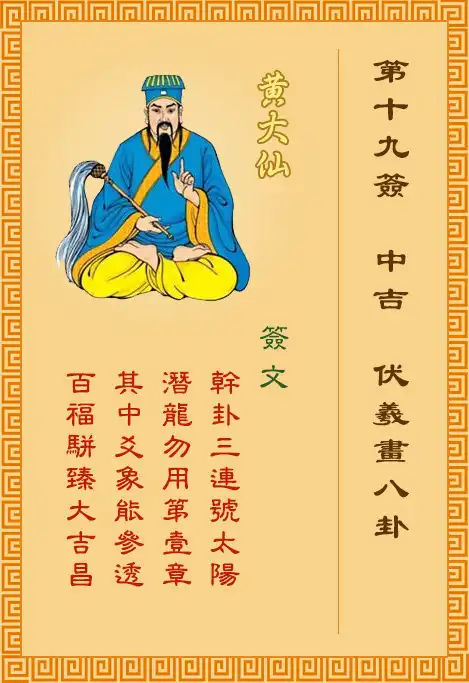 第十九簽 中吉 伏羲畫八卦
黃大仙
簽文
幹卦三連號太陽
潛龍勿用第壹章
其中爻象能參透
百福駢臻大吉昌